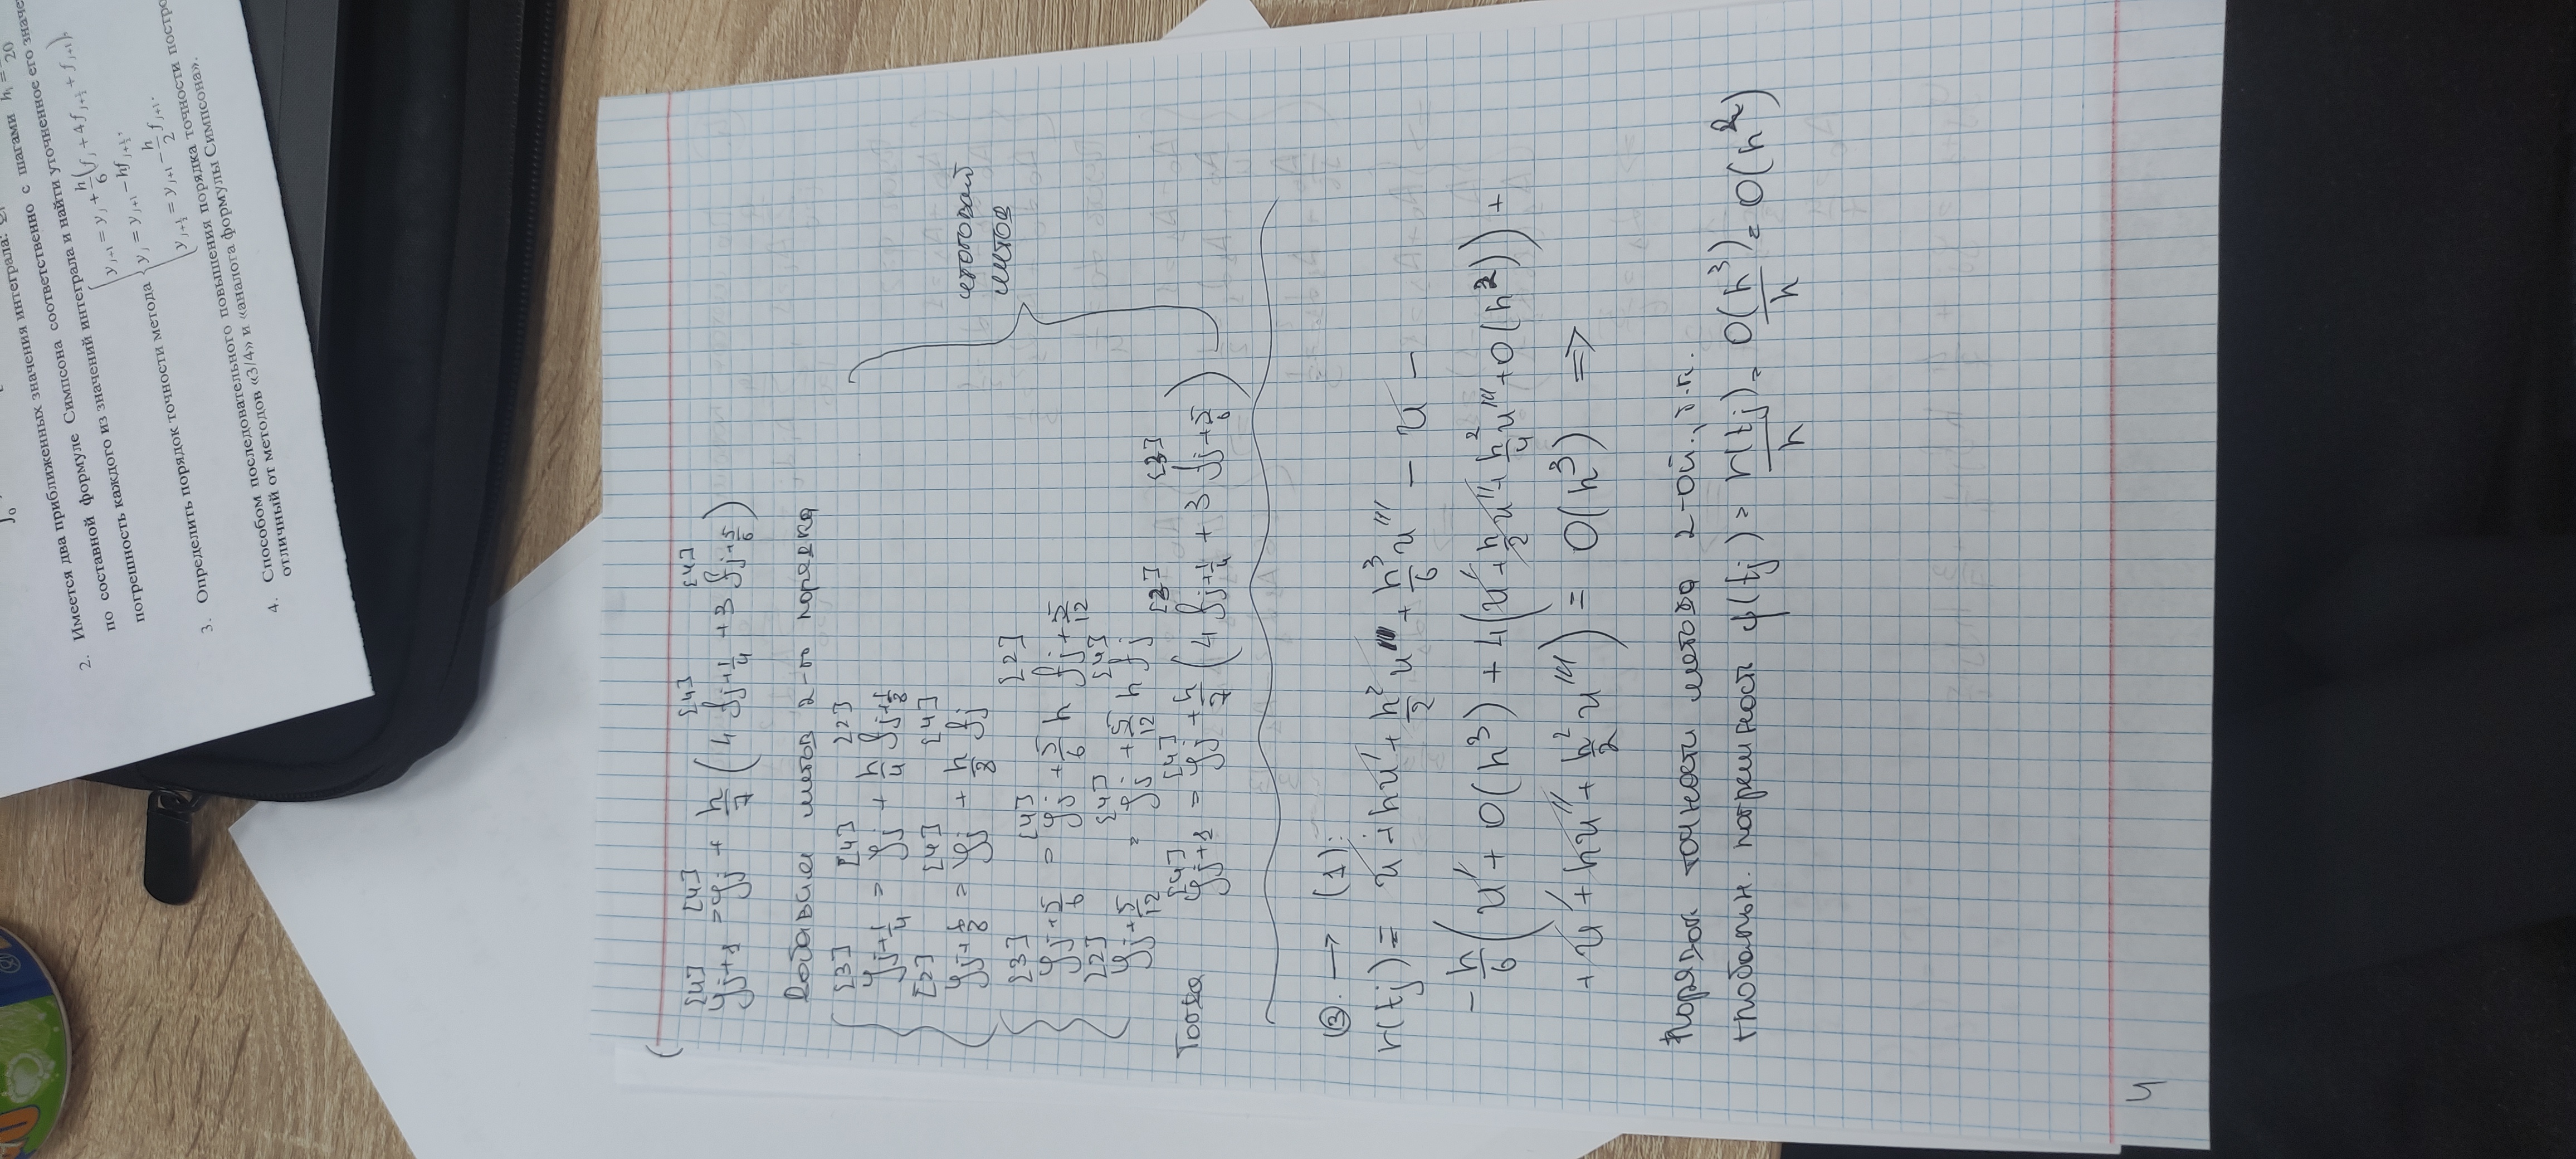 ∫₀
20
2. Имеется два приближенных значения интеграла:
по составной формуле Симпсона соответственно с шагами h₁ =
погрешность каждого из значений интеграла и найти уточненное его значе
3. Определить порядок точности метода { y_{j+1} = y_j + h/6 (f_j + 4f_{j+1/2} + f_{j+1}),
y_j = y_{j+1} − hf_{j+1/2},
y_{j+1/2} = y_{j+1} − h/2 f_{j+1}.
4. Способом последовательного повышения порядка точности постро
отличный от методов «3/4» и «аналога формулы Симпсона».
[4] [4] [4] [4]
y_{j+1} = y_j + h/7 (4 f_{j+1/4} + 3 f_{j+5/6})
Добавим метод 2-го порядка
[3] [4] [2]
y_{j+1/4} = y_j + h/4 f_{j+1/8}
[2] [4] [4]
y_{j+1/8} = y_j + h/8 f_j
итоговый
метод
[3] [4] [2]
y_{j+5/6} = y_j + 5/6 h f_{j+5/12}
[2] [4] [4]
y_{j+5/12} = y_j + 5/12 h f_j
[4] [4] [3] [3]
Тогда y_{j+1} = y_j + h/7 (4 f_{j+1/4} + 3 f_{j+5/6})
③. → (1):
r(tj) = u + hu' + h²/2 u'' + h³/6 u''' − u −
− h/6 (u' + O(h³) + 4(u' + h/2 u'' + h²/4 u''' + O(h²)) +
+ u' + hu'' + h²/2 u''') = O(h³) ⇒
Порядок точности метода 2-ой., т.к.
глобальн. погрешность ψ(tj) = r(tj)/h = O(h³)/h = O(h²)
4